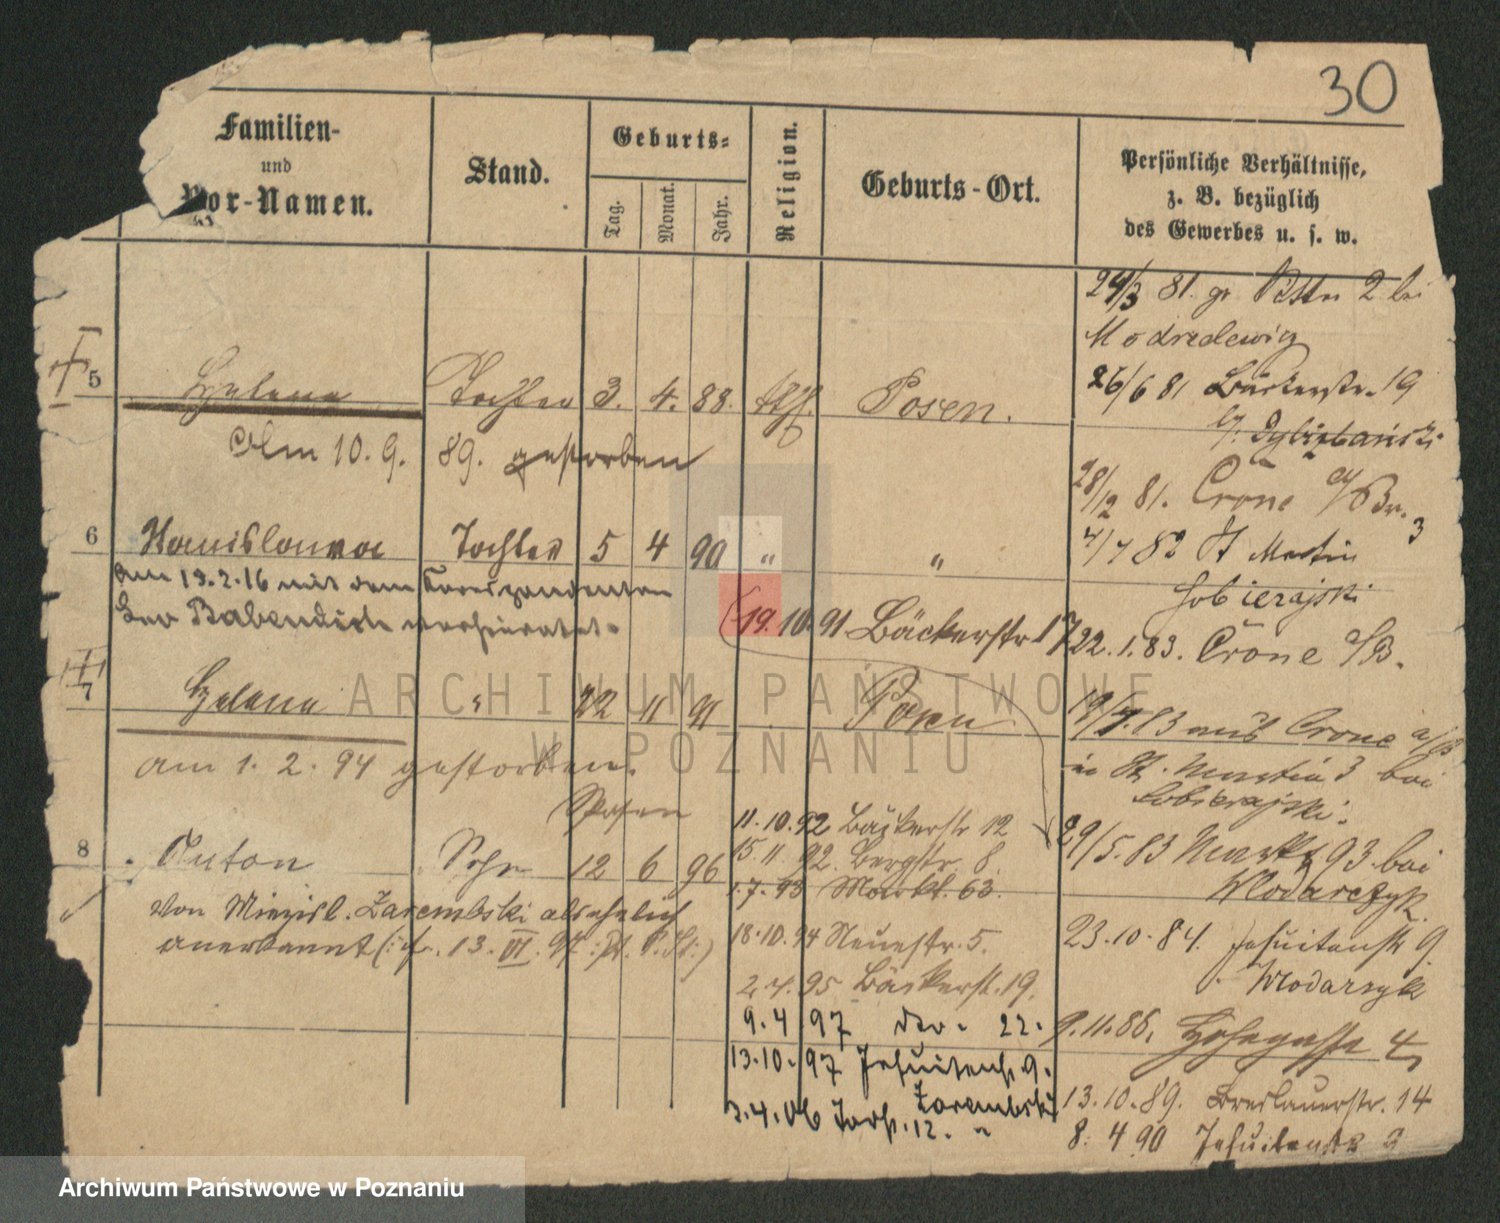 30
Familien-
und
Vor-Namen.
Stand.
Geburts-
Tag.
Monat.
Jahr.
Religion.
Geburts-Ort.
Persönliche Verhältnisse,
z. B. bezüglich
des Gewerbes u. s. w.
24/3 81. gr 2 bei
26/6 81 Bäckerstr. 19
5 Helena Tochter 3. 4. 88. kth. Posen.
Am 10. 9. 89. gestorben
28/12 81. Crone a/Br.
6 Stanislawa Tochter 5 4 90 " "
4/7 82 St Martin 3
Sobierajski
am 19.2.16 mit dem Korrespondenten
Leo Babendick verheiratet.
19.10.91 Bäckerstr 17
22.1.83. Crone a/B.
7 Helena " 22 11 91 Posen
19/4.83 aus Crone a/B
in St. Martin 3 bei
Sobierajski.
am 1. 2. 94 gestorben.
Posen
11.10.92 Bäckerstr 12
29/5.83 Markt 93 bei
Wlodarczyk.
8 Anton Sohn 12 6 96
15 11 92. Bergstr. 8
1.7.93 Markt. 63.
von Miezisl. Zarembski als ehelich
anerkannt (: fr. 13. VI. 97. : St. P. St :)
18.10.94 Neuestr. 5.
23.10.84. Jesuitenstr 9.
Wlodarzyk
2.4.95 Bäckerst. 19.
9.4 97 dto. 22.
9.11.86. Hohegasse 4
13.10.97 Jesuitenstr. 9.
Zarembski
13.10.89. Breslauerstr. 14
3.4.06 Torstr. 12. "
8. 4 90 Jesuitenstr 9
ARCHIWUM PAŃSTWOWE
W POZNANIU
Archiwum Państwowe w Poznaniu